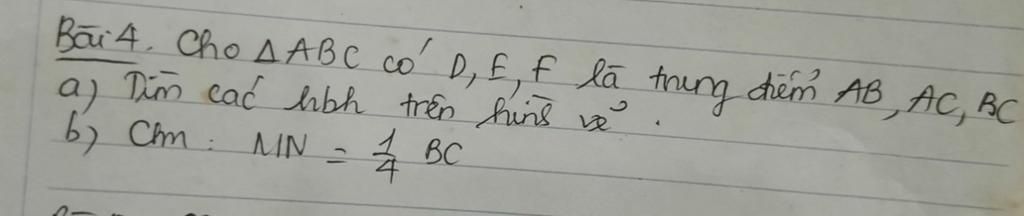 Bài 4. Cho △ABC có D, E, F là trung điểm AB, AC, BC
a) Tìm các hbh trên hình vẽ.
b) Cm: MN = 1/4 BC